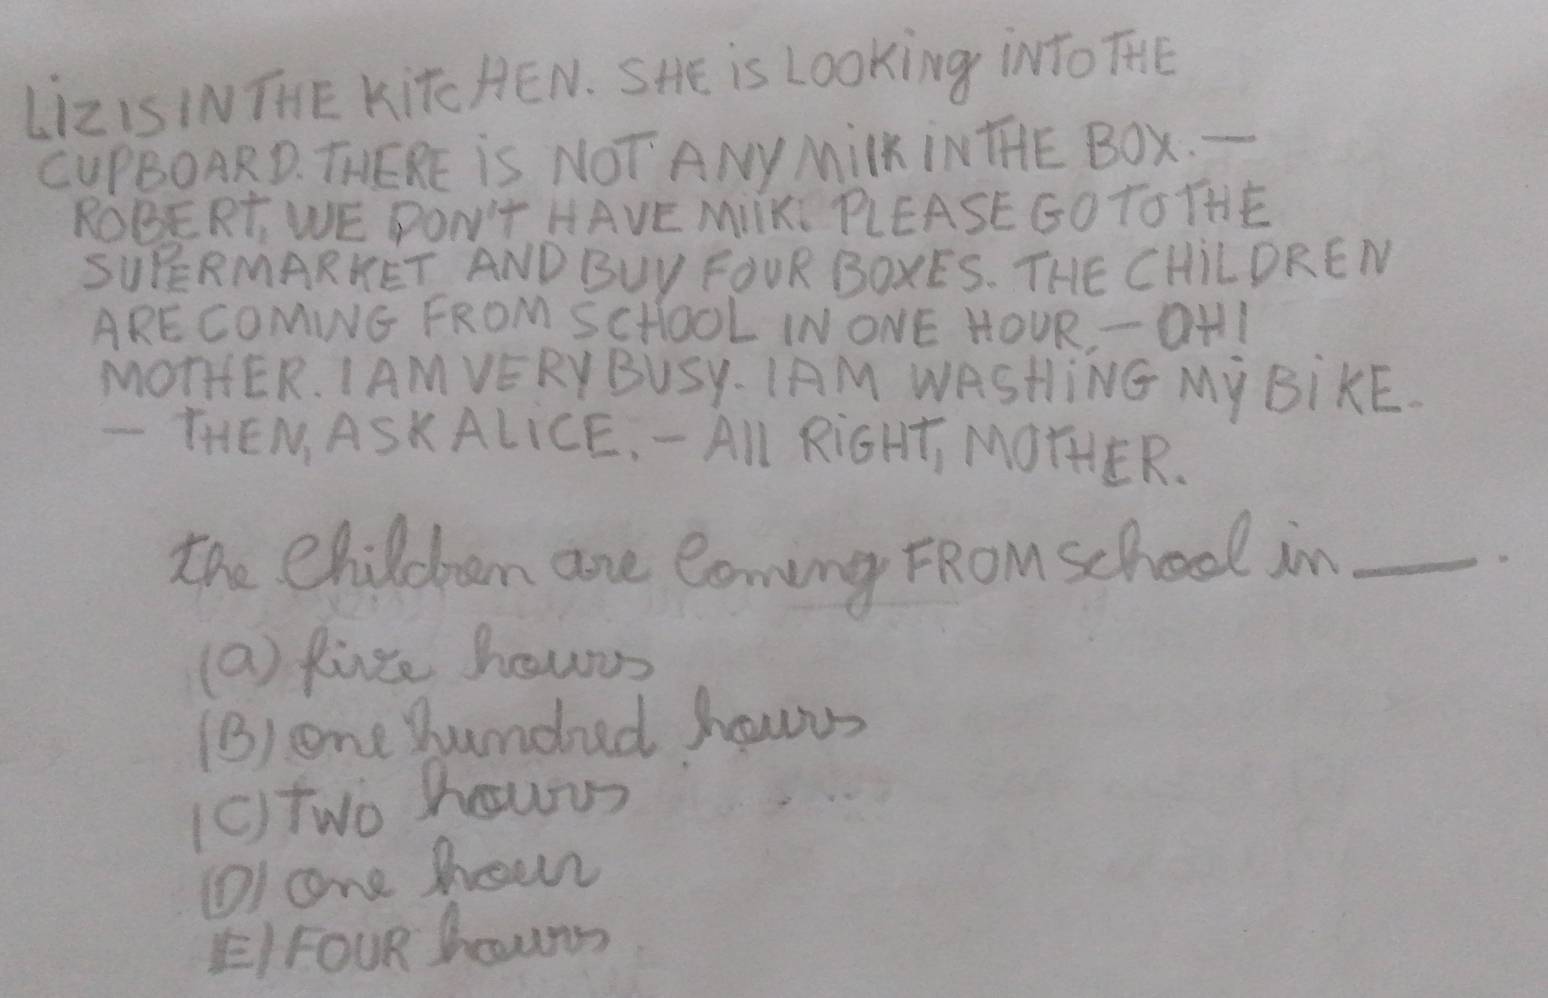 LiZ IS IN THE KiTcHEN. SHE iS LOOKing iNTO THE
CUPBOARD. THERE iS NOT ANY MilK iN THE BOX. —
ROBERT, WE DON'T HAVE MilK. PLEASE GO TO THE
SUPERMARKET AND BUY FOUR BOXES. THE CHiLDREN
ARE COMING FROM SCHOOL IN ONE HOUR. — OH!
MOTHER. I AM VERY BUSY. I AM WASHiNG MY BiKE.
— THEN, ASK ALiCE. — All RiGHT, MOTHER.
the Children are Coming FROM School in ___.
(a) five hours
(B) one hundred hours
(C) TWO hours
(D) one hour
E) FOUR hours